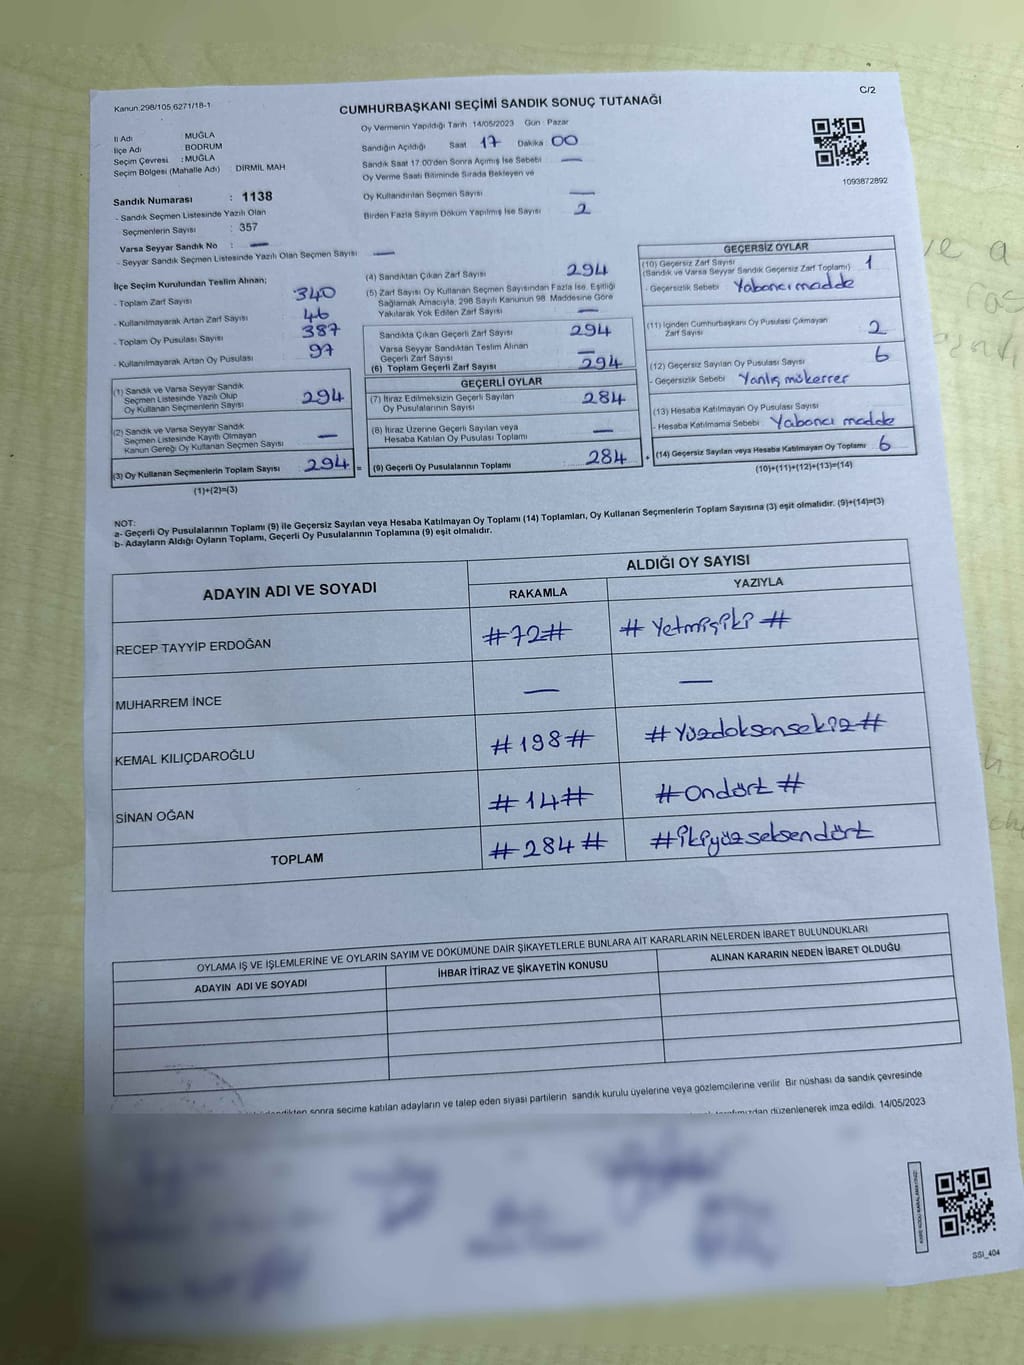 Kanun.298/105,6271/18-1
C/2
CUMHURBAŞKANI SEÇİMİ SANDIK SONUÇ TUTANAĞI
İl Adı MUĞLA
İlçe Adı BODRUM
Seçim Çevresi : MUĞLA
Seçim Bölgesi (Mahalle Adı) : DİRMİL MAH
Oy Vermenin Yapıldığı Tarih 14/05/2023 Gün : Pazar
Sandığın Açıldığı Saat 17 Dakika 00
Sandık Saat 17.00'den Sonra Açımış İse Sebebi —
Oy Verme Saati Bitiminde Sırada Bekleyen ve
Oy Kullandırılan Seçmen Sayısı —
Birden Fazla Sayım Döküm Yapılmış İse Sayısı 2
1093872892
Sandık Numarası : 1138
- Sandık Seçmen Listesinde Yazılı Olan
Seçmenlerin Sayısı : 357
Varsa Seyyar Sandık No : —
- Seyyar Sandık Seçmen Listesinde Yazılı Olan Seçmen Sayısı —
İlçe Seçim Kurulundan Teslim Alınan;
- Toplam Zarf Sayısı 340
- Kullanılmayarak Artan Zarf Sayısı 46
- Toplam Oy Pusulası Sayısı 387
- Kullanılmayarak Artan Oy Pusulası 97
(1) Sandık ve Varsa Seyyar Sandık
Seçmen Listesinde Yazılı Olup
Oy Kullanan Seçmenlerin Sayısı 294
(2) Sandık ve Varsa Seyyar Sandık
Seçmen Listesinde Kayıtlı Olmayan
Kanun Gereği Oy Kullanan Seçmen Sayısı —
(3) Oy Kullanan Seçmenlerin Toplam Sayısı 294 =
(1)+(2)=(3)
(4) Sandıktan Çıkan Zarf Sayısı 294
(5) Zarf Sayısı Oy Kullanan Seçmen Sayısından Fazla İse, Eşitliği
Sağlamak Amacıyla, 298 Sayılı Kanunun 98. Maddesine Göre
Yakılarak Yok Edilen Zarf Sayısı —
Sandıkta Çıkan Geçerli Zarf Sayısı 294
Varsa Seyyar Sandıktan Teslim Alınan
Geçerli Zarf Sayısı —
(6) Toplam Geçerli Zarf Sayısı 294
GEÇERLİ OYLAR
(7) İtiraz Edilmeksizin Geçerli Sayılan
Oy Pusulalarının Sayısı 284
(8) İtiraz Üzerine Geçerli Sayılan veya
Hesaba Katılan Oy Pusulası Toplamı —
(9) Geçerli Oy Pusulalarının Toplamı 284 +
GEÇERSİZ OYLAR
(10) Geçersiz Zarf Sayısı
(Sandık ve Varsa Seyyar Sandık Geçersiz Zarf Toplamı) 1
- Geçersizlik Sebebi Yabancı madde
(11) İçinden Cumhurbaşkanı Oy Pusulası Çıkmayan
Zarf Sayısı 2
(12) Geçersiz Sayılan Oy Pusulası Sayısı 6
- Geçersizlik Sebebi Yanlış mükerrer
(13) Hesaba Katılmayan Oy Pusulası Sayısı
- Hesaba Katılmama Sebebi Yabancı madde
(14) Geçersiz Sayılan veya Hesaba Katılmayan Oy Toplamı 6
(10)+(11)+(12)+(13)=(14)
NOT:
a- Geçerli Oy Pusulalarının Toplamı (9) ile Geçersiz Sayılan veya Hesaba Katılmayan Oy Toplamı (14) Toplamları, Oy Kullanan Seçmenlerin Toplam Sayısına (3) eşit olmalıdır. (9)+(14)=(3)
b- Adayların Aldığı Oyların Toplamı, Geçerli Oy Pusulalarının Toplamına (9) eşit olmalıdır.
ADAYIN ADI VE SOYADI ALDIĞI OY SAYISI
RAKAMLA YAZIYLA
RECEP TAYYİP ERDOĞAN #72# # Yetmişiki #
MUHARREM İNCE — —
KEMAL KILIÇDAROĞLU #198# #Yüzdoksansekiz#
SİNAN OĞAN #14# #Ondört #
TOPLAM #284# #ikiyüzseksendört
OYLAMA İŞ VE İŞLEMLERİNE VE OYLARIN SAYIM VE DÖKÜMÜNE DAİR ŞİKAYETLERLE BUNLARA AİT KARARLARIN NELERDEN İBARET BULUNDUKLARI
ADAYIN ADI VE SOYADI İHBAR İTİRAZ VE ŞİKAYETİN KONUSU ALINAN KARARIN NEDEN İBARET OLDUĞU
sonra seçime katılan adayların ve talep eden siyasi partilerin sandık kurulu üyelerine veya gözlemcilerine verilir. Bir nüshası da sandık çevresinde
tarafımızdan düzenlenerek imza edildi. 14/05/2023
SSİ_404